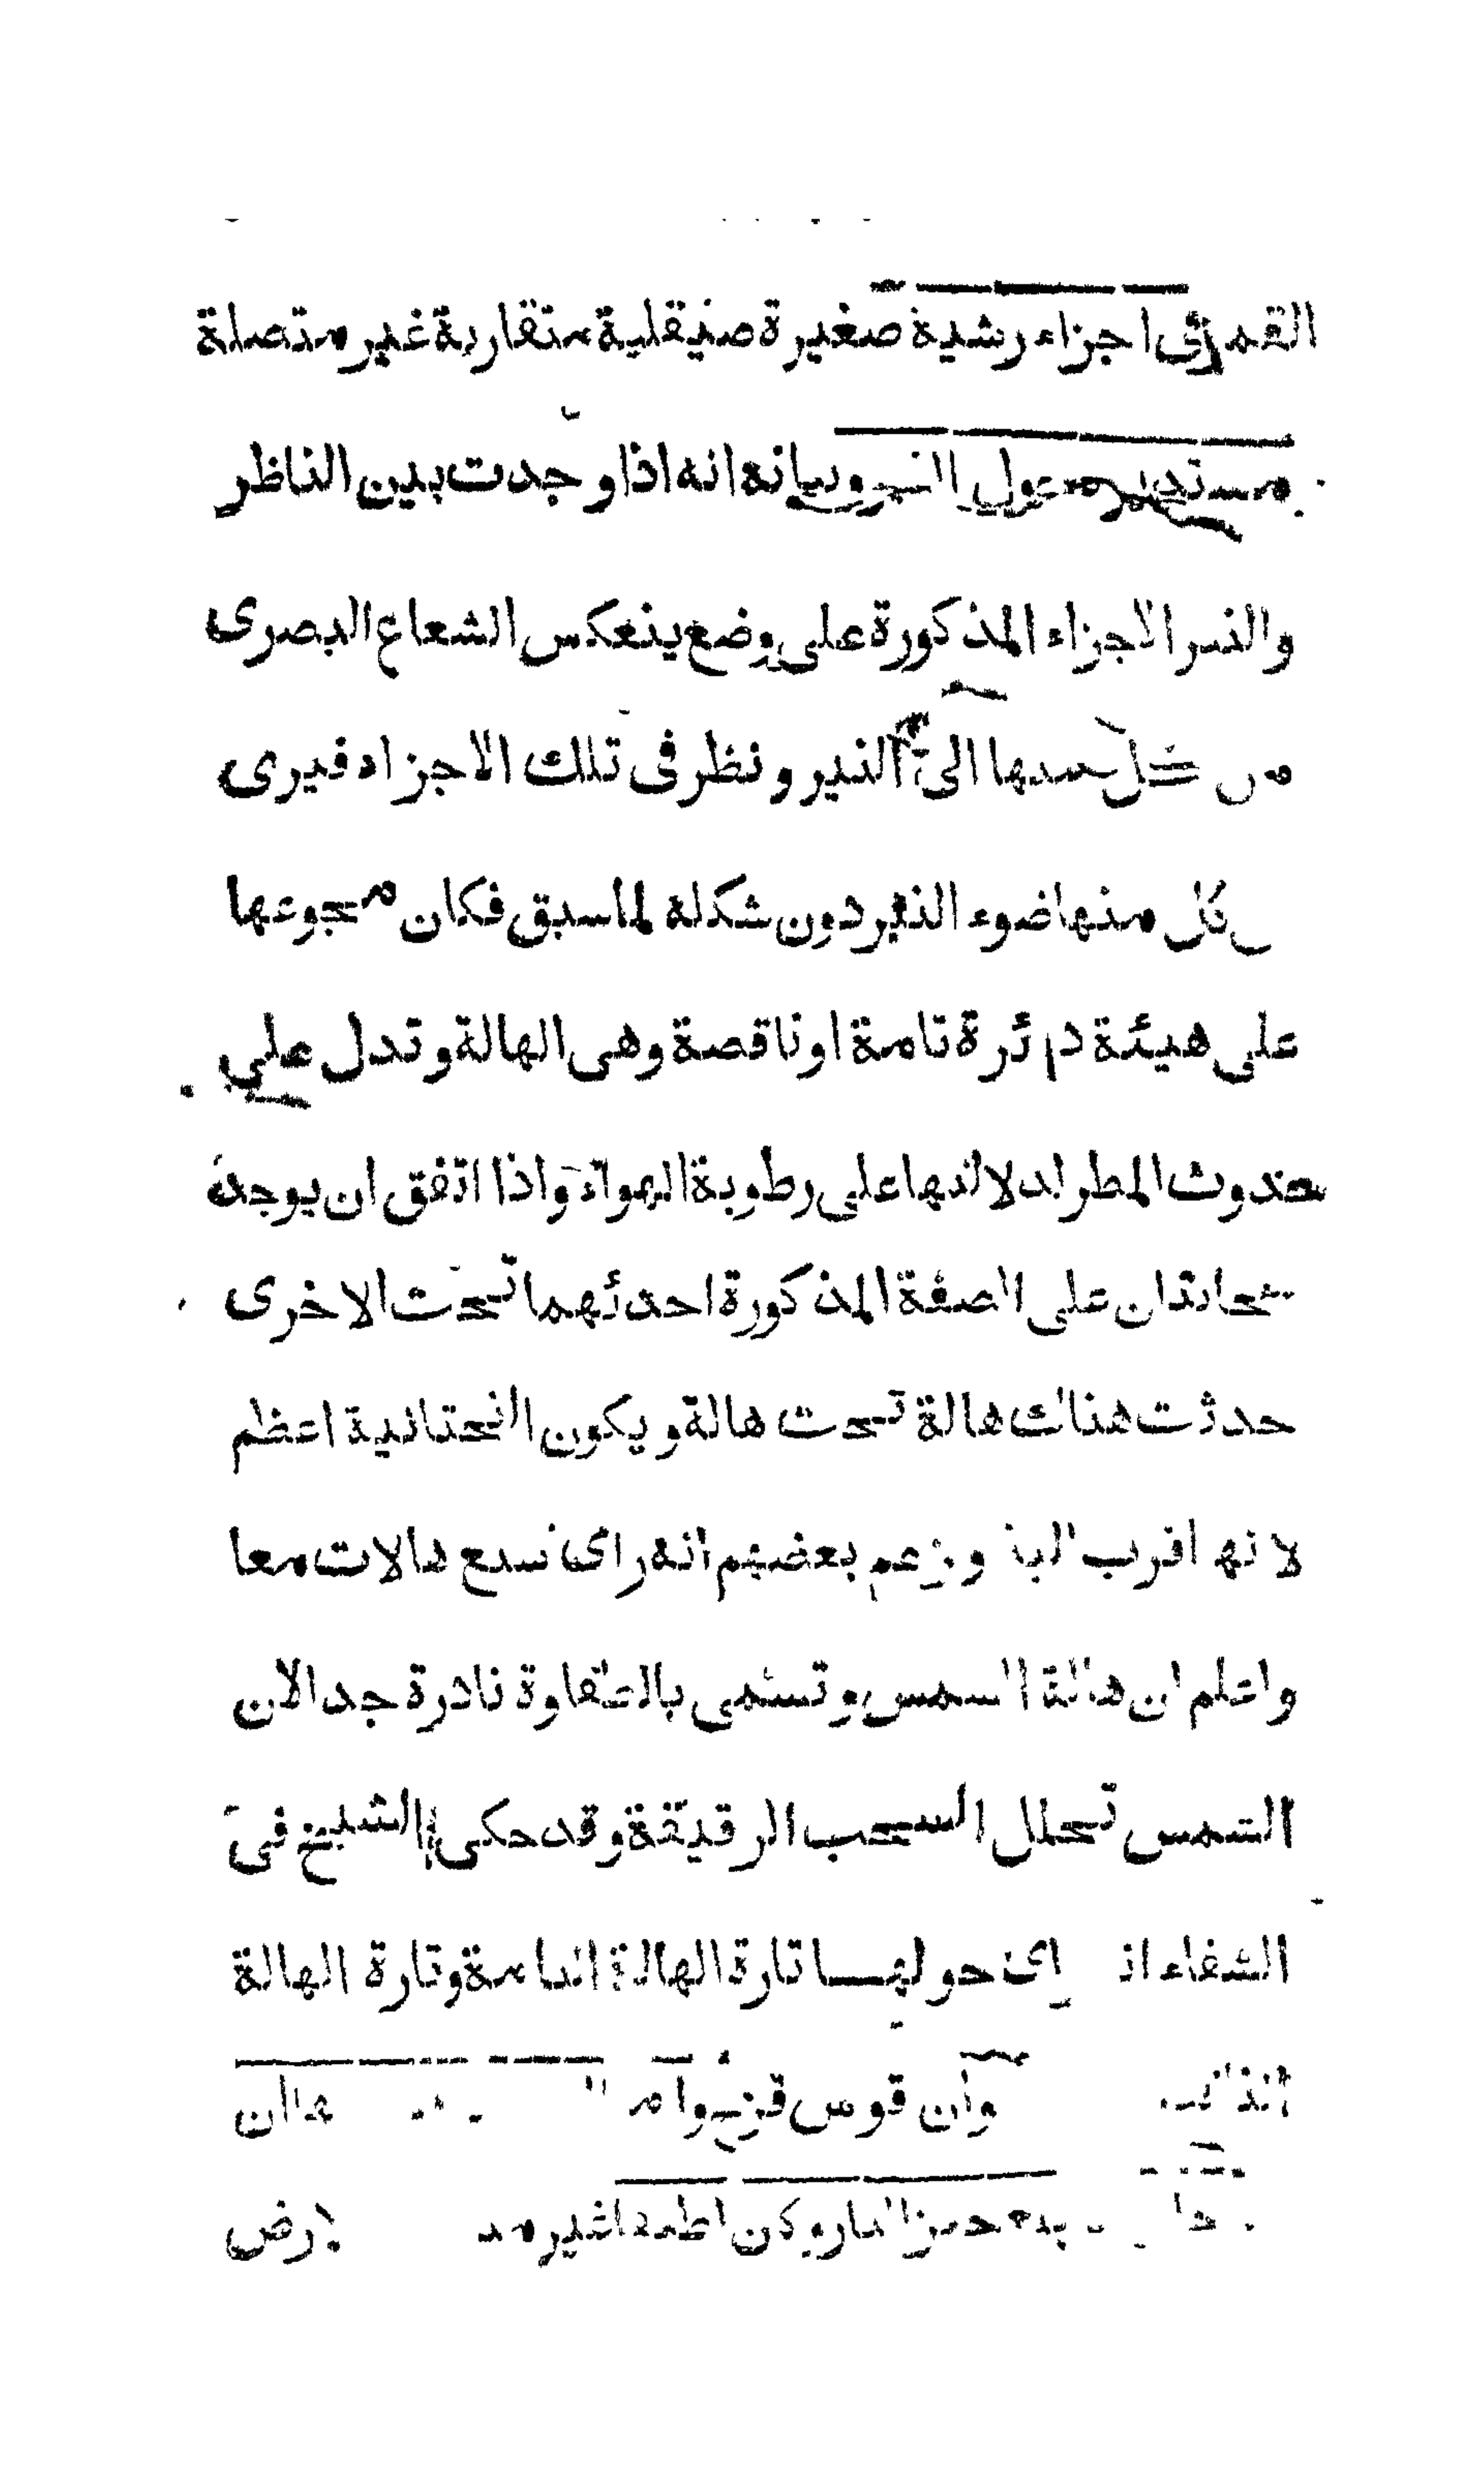 القمر فى اجزاء رشية صغيرة صقيلية متقاربة غير متصلة
مستديرة حول النير وبيانه انه اذا وجدت بين الناظر
والنير الاجزاء المذكورة على وضع ينعكس الشعاع البصرى
من كل منها الى النير ونظر فى تلك الاجزاء فيرى
كل منها ضوء النير دون شكله لما سبق فكان مجموعها
على هيئة دائرة تامة او ناقصة وهى الهالة وتدل على
حدوث المطر لدلالتها على رطوبة الهواء واذا اتفق ان يوجد
سحابتان على الصفة المذكورة احدئهما تحت الاخرى
حدثت هناك هالة تحت هالة ويكون التحتانية اعظم
لانها اقرب الينا وزعم بعضهم انه راى سبع هالات معا
واعلم ان هالة الشمس وتسمى بالطفاوة نادرة جدا لان
الشمس تحلل السحب الرقيقة وقد حكى الشيخ فى
الشفاء انه راى حولها تارة الهالة التامة وتارة الهالة
الناقصة وان قوس قزح وا